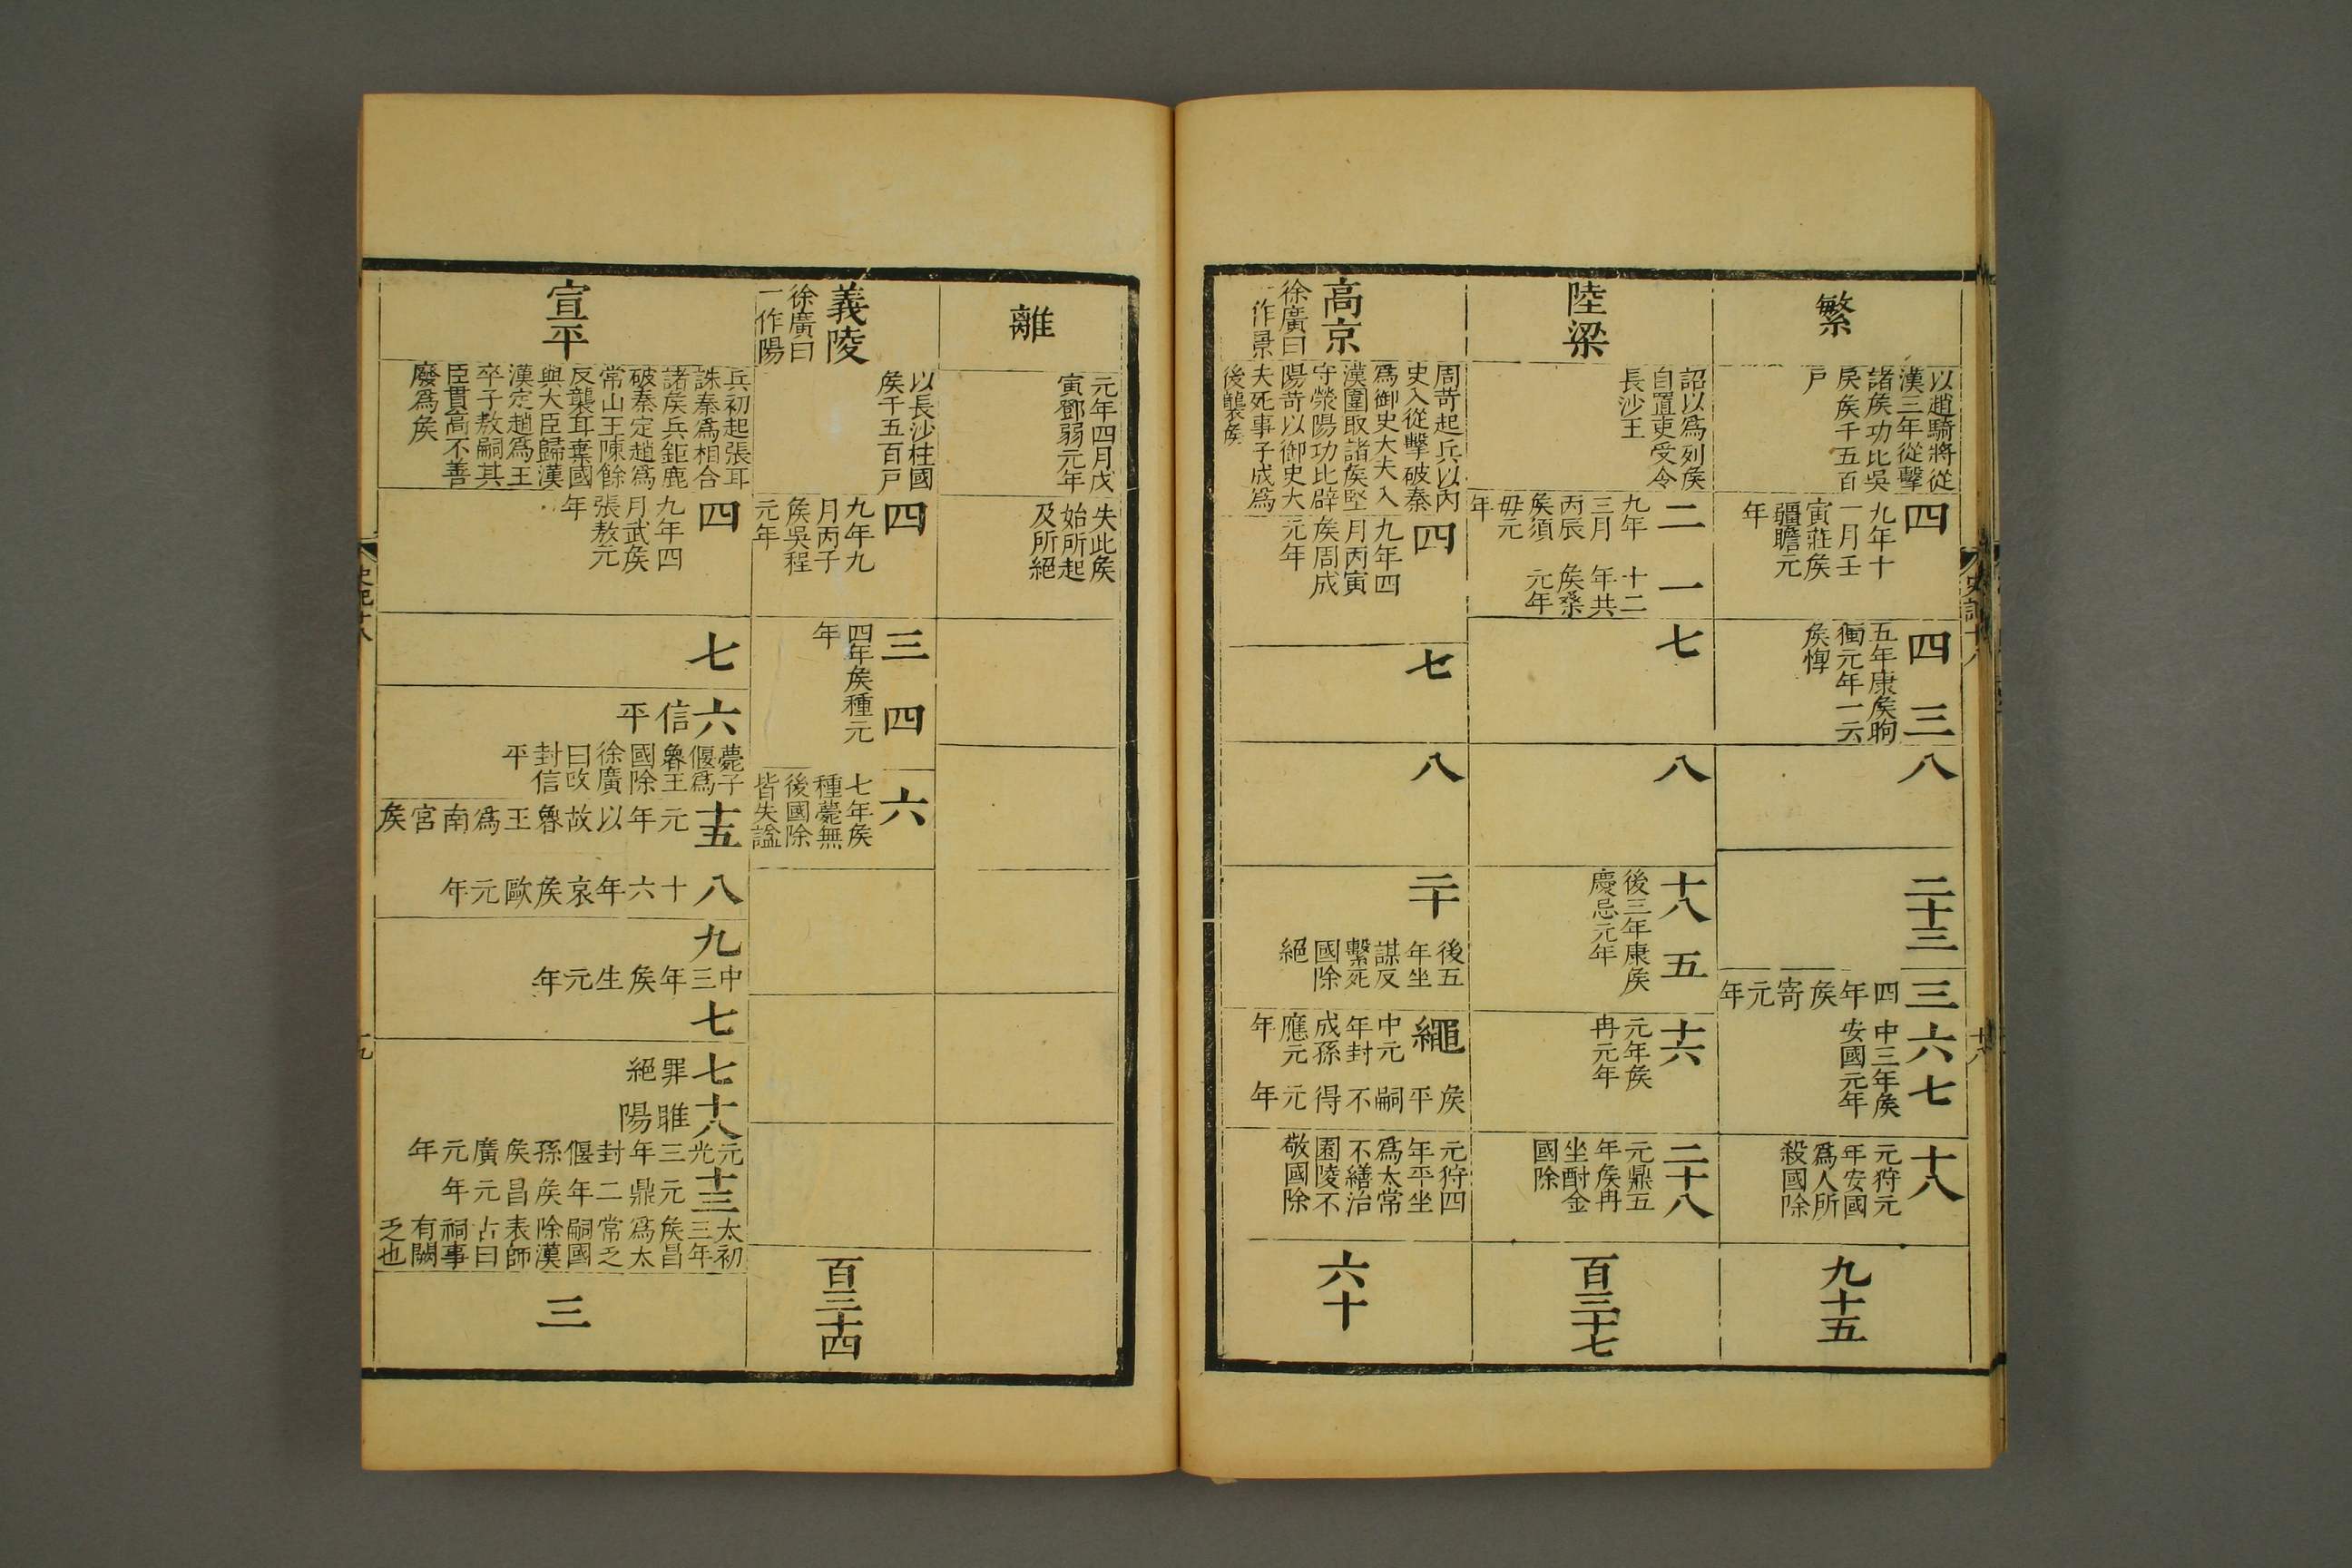 繁
以趙騎將從
漢三年從擊
諸矦功比吳
房矦千五百
戶
四
九年十
一月壬
寅莊矦
疆瞻元
年
四
五年康矦昫
獨元年一云
矦惸
三
八
二十三
三
四年矦寄元年
六
中三年矦
安國元年
七
十八
元狩元
年安國
爲人所
殺國除
九十五
陸梁
詔以爲列矦
自置吏受令
長沙王
二
九年
三月
丙辰
矦須
毋元
年
一
十二
年共
矦桑
元年
七
八
十八
後三年康矦
慶忌元年
五
十六
元年矦
冉元年
二十八
元鼎五
年矦冉
坐酎金
國除
百三十七
高京
徐廣曰
一作景
周苛起兵以內
史入從擊破秦
爲御史大夫入
漢圍取諸矦堅
守滎陽功比辟
陽苛以御史大
夫死事子成爲
後襲矦
四
九年四
月丙寅
矦周成
元年
七
八
二十
後五
年坐
謀反
繫死
國除
絕
繩
中元
年封
成孫
應元
年
矦平嗣不得元年
元狩四
年平坐
爲太常
不繕治
園陵不
敬國除
六十
離
元年四月戊
寅鄧弱元年
失此矦
始所起
及所絕
義陵
徐廣曰
一作陽
以長沙柱國
矦千五百戶
四
九年九
月丙子
矦吳程
元年
三
四年矦種元
年
四
六
七年矦
種薨無
後國除
皆失謚
百三十四
宣平
兵初起張耳
誅秦爲相合
諸矦兵鉅鹿
破秦定趙爲
常山王陳餘
反襲耳棄國
與大臣歸漢
漢定趙爲王
卒子敖嗣其
臣貫高不善
廢爲矦
四
九年四
月武矦
張敖元
年
七
六
信平
薨子
偃爲
魯王
國除
徐廣
曰攺
封信
平
十五
元年以故魯王爲南宮矦
八
十六年哀矦歐元年
九
中三年矦生元年
七
七
罪絕
十八
睢陽
元光三年封偃孫矦廣元年
十三
元鼎二年矦昌元年
太初
三年
矦昌
爲太
常乏
嗣國
除漢
表師
古曰
祠事
有闕
乏也
三